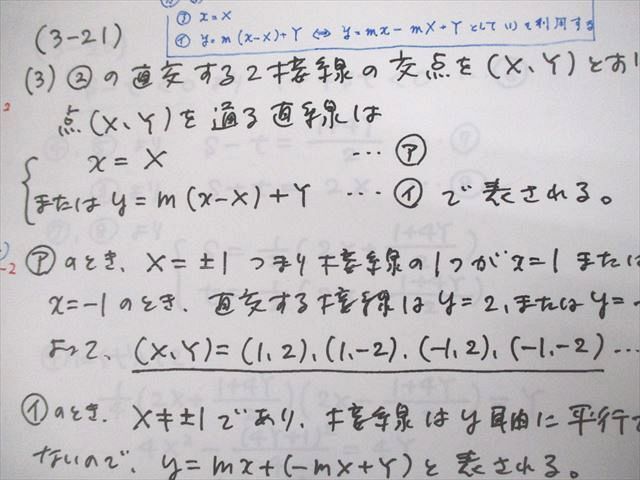 ㋐ x=X
㋑ y=m(x-X)+Y ⇔ y=mx-mX+Y として(ii)を利用する
(3-21)
(3) ②の直交する2接線の交点を(X、Y)とお
点(X、Y)を通る直線は
x=X … ㋐
または y=m(x-X)+Y … ㋑ で表される。
㋐のとき、X=±1 つまり接線の1つがx=1または
x=-1のとき、直交する接線はy=2、またはy=-
よって、(X,Y)=(1,2),(1,-2),(-1,2),(-1,-2) …
㋑のとき、X≠±1であり、接線はy軸に平行で
ないので、y=mx+(-mX+Y)と表される。